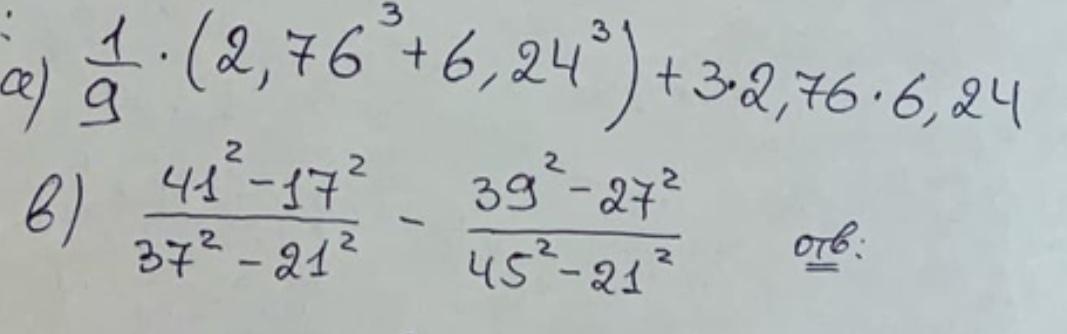 а) 1/9 · (2,76³ + 6,24³) + 3·2,76 · 6,24
в) (41² - 17²)/(37² - 21²) - (39² - 27²)/(45² - 21²) отв: